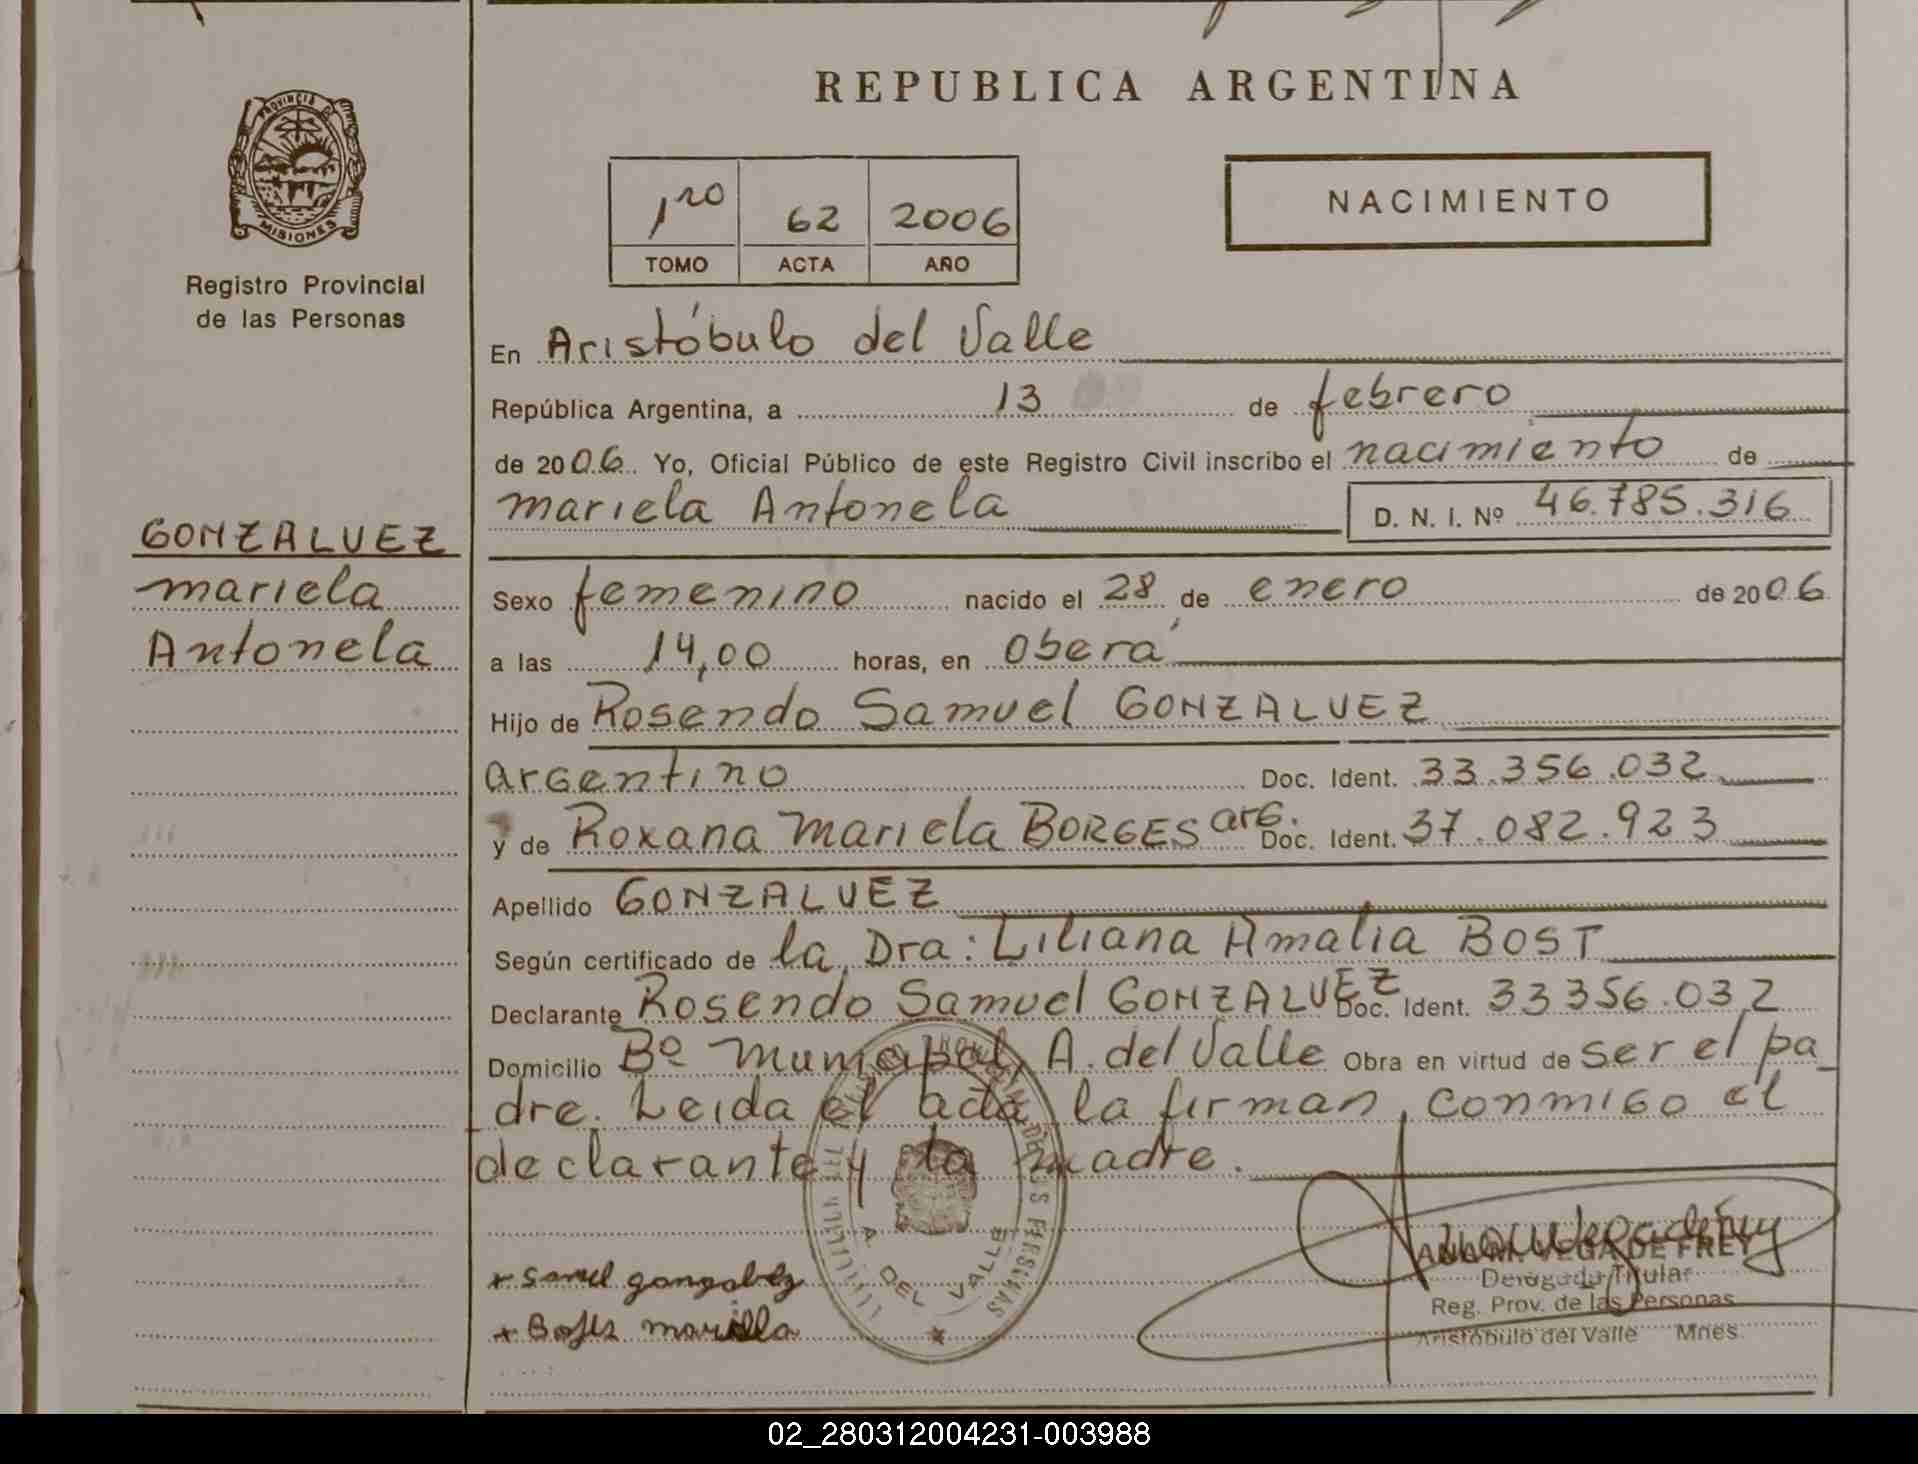 REPUBLICA ARGENTINA
PROVINCIA DE
MISIONES
Registro Provincial
de las Personas
1ro 62 2006
TOMO ACTA AÑO
NACIMIENTO
En Aristóbulo del Valle
República Argentina, a 13 de febrero
de 2006 Yo, Oficial Público de este Registro Civil inscribo el nacimiento de
mariela Antonela D. N. I. Nº 46.785.316
GONZALVEZ
mariela
Antonela
Sexo femenino nacido el 28 de enero de 2006
a las 14,00 horas, en Oberá
Hijo de Rosendo Samuel GONZALVEZ
argentino Doc. Ident. 33.356.032
y de Roxana Mariela BORGES arg. Doc. Ident. 37.082.923
Apellido GONZALVEZ
Según certificado de la Dra: Liliana Amalia BOST
Declarante Rosendo Samuel GONZALVEZ Doc. Ident. 33356.032
Domicilio Bº Municipal, A. del Valle Obra en virtud de ser el pa_
dre. Leida el acta la firman, conmigo el
declarante y la madre.
A. DEL VALLE
DE LAS PERSONAS
VEGA DE FREY
Delegada Titular
Reg. Prov. de las Personas
Aristóbulo del Valle Mnes.
02_280312004231-003988